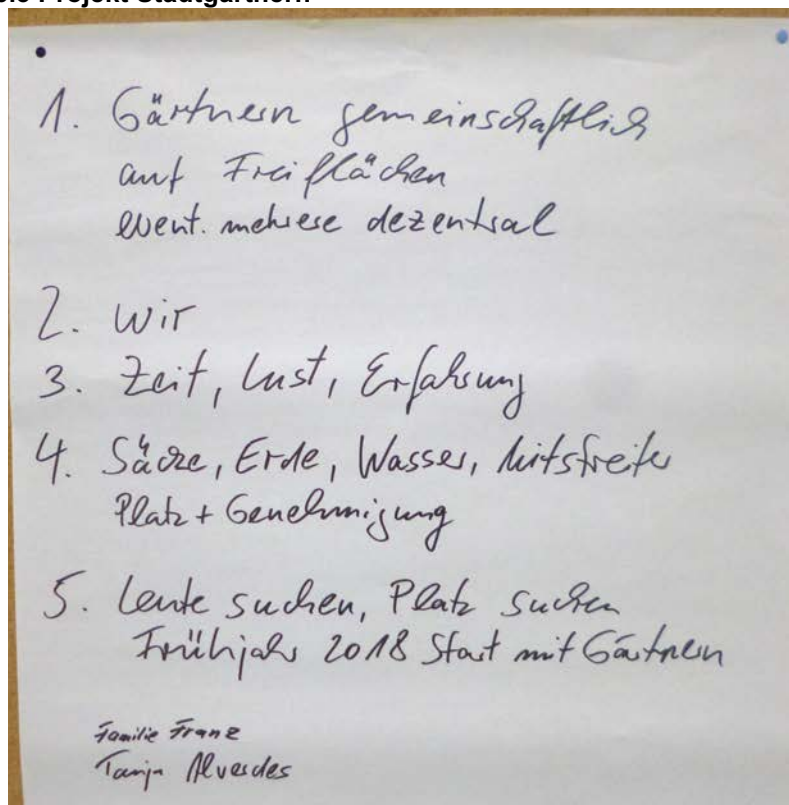 Projekt Stadtgärtnern
1. Gärtnern gemeinschaftlich
auf Freiflächen
event. mehrere dezentral
2. Wir
3. Zeit, Lust, Erfahrung
4. Säcke, Erde, Wasser, Mitstreiter
Platz + Genehmigung
5. Leute suchen, Platz suchen
Frühjahr 2018 Start mit Gärtnern
Familie Franz
Tanja Alverdes